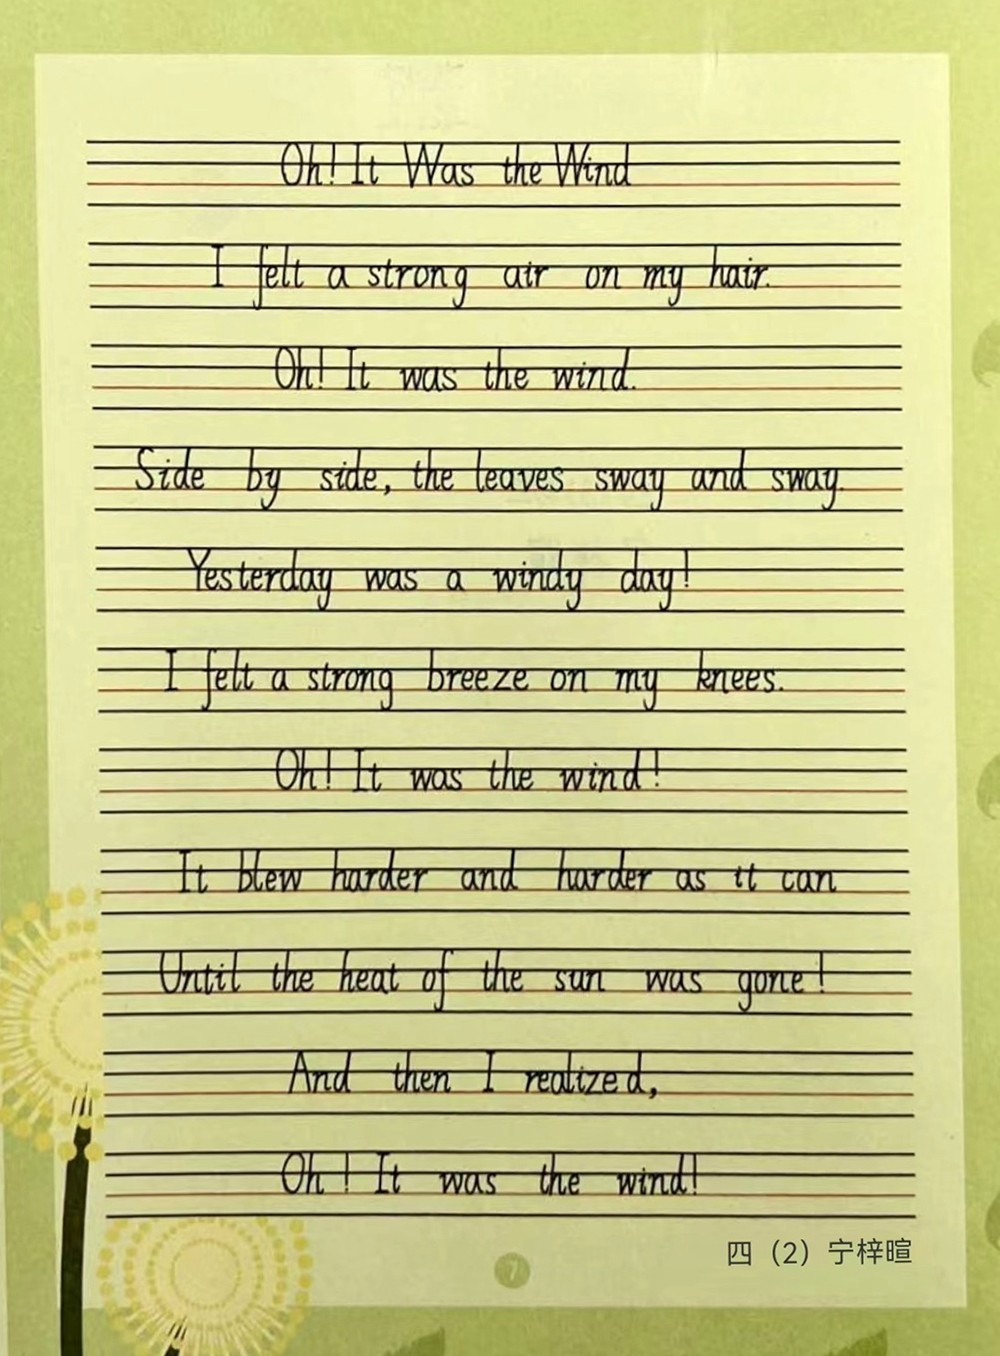 Oh! It Was the Wind
I felt a strong air on my hair.
Oh! It was the wind.
Side by side, the leaves sway and sway.
Yesterday was a windy day!
I felt a strong breeze on my knees.
Oh! It was the wind!
It blew harder and harder as it can
Until the heat of the sun was gone!
And then I realized,
Oh! It was the wind!
四（2）宁梓暄
7